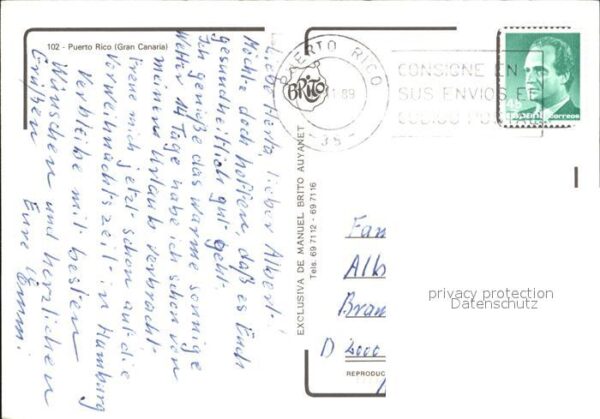 102 - Puerto Rico (Gran Canaria)
lieber Albert!
Möchte doch hoffen, daß es Euch
gesundheitlich gut geht.
Ich genieße das warme sonnige
Wetter. 14 Tage habe ich schon von
meinem Urlaub verbracht.
Freue mich jetzt schon auf die
Vorweihnachtszeit in Hamburg
Verbleibe mit besten
Wünschen und herzlichen
Grüßen
Eure
EXCLUSIVA DE MANUEL BRITO AUYANET
Tels. 69 71 12 - 69 71 16
BRITO
PUERTO RICO
89
CONSIGNE EN
SUS ENVIOS EL
CODIGO POSTAL
correos
Fam
Alb
Bram
D 2000
REPRODUC
privacy protection
Datenschutz